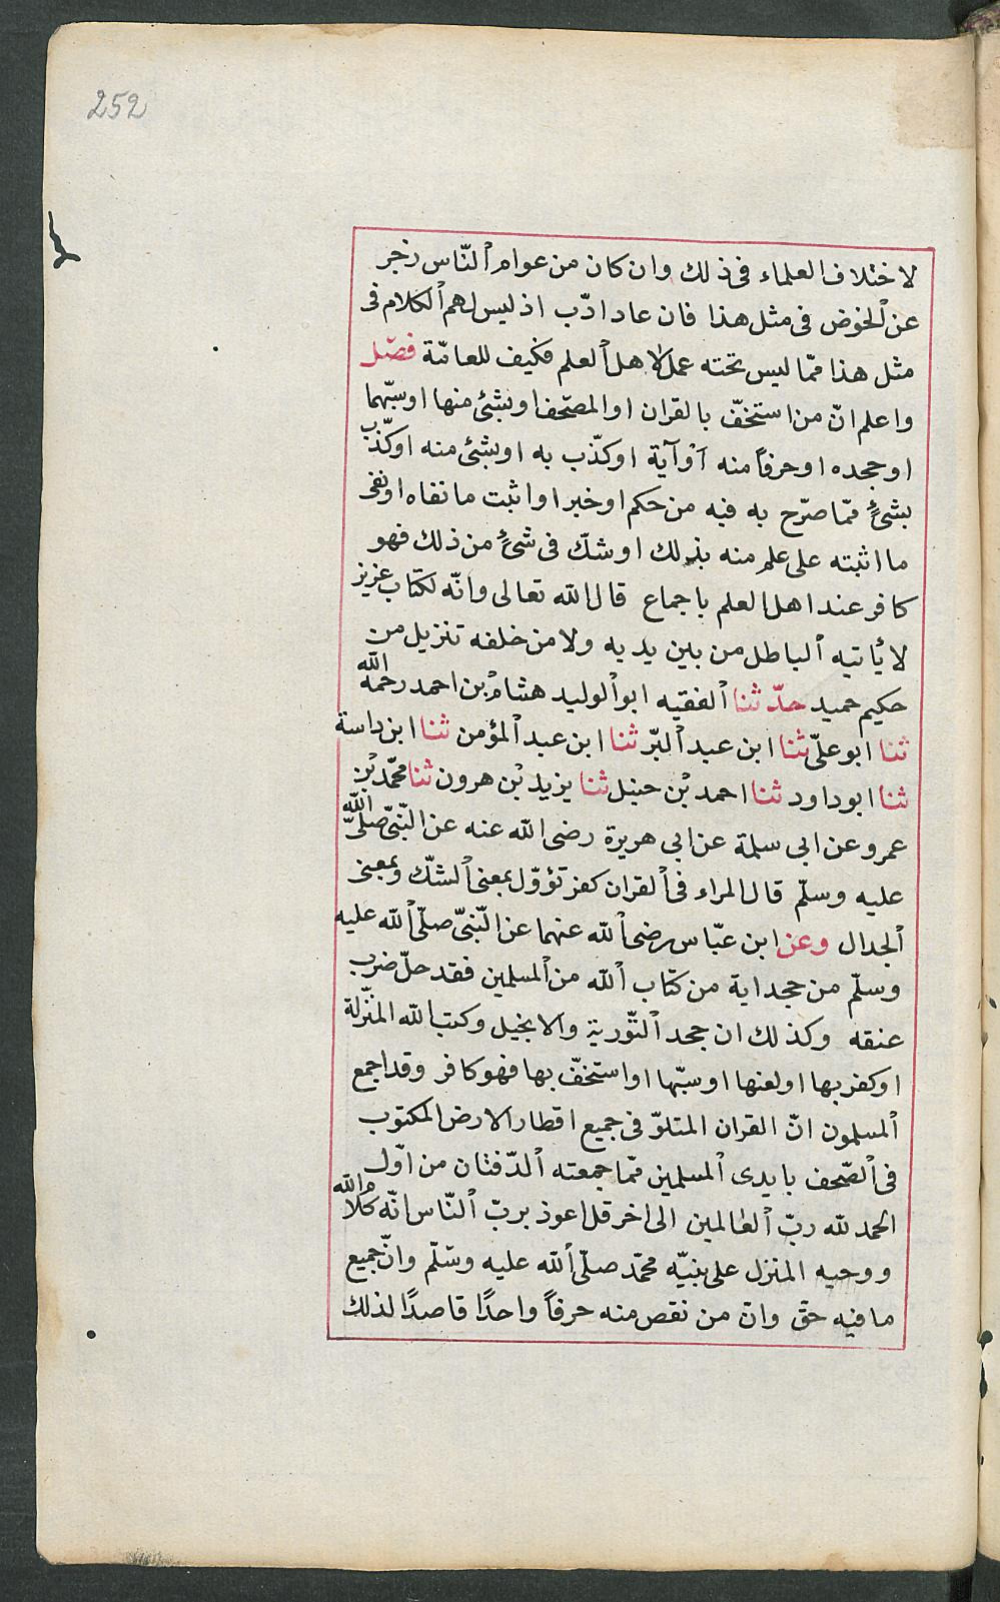 252
لاختلاف العلماء فى ذلك وان كان من عوام ٱلنّاس زجر
عن ٱلخوض فى مثل هذا فان عاد ادّب اذ ليس لهم ٱلكلام فى
مثل هذا ممّا ليس تحته عمل لاهل ٱلعلم فكيف للعامّة فصل
واعلم انّ من استخفّ بالقران او المصحف او بشئ منها او سبّهما
او جحده او حرفاً منه او آية او كذّب به او بشئ منه او كذّب
بشئ ممّا صرّح به فيه من حكم او خبر او اثبت ما نفاه او نفى
ما اثبته على علم منه بذلك او شكّ فى شئ من ذلك فهو
كافر عند اهل العلم باجماع قال الله تعالى وانّه لكتاب عزيز
لا يأتيه ٱلباطل من بين يديه ولا من خلفه تنزيل من
حكيم حميد حدّثنا ٱلفقيه ابو ٱلوليد هشام بن احمد رحمه الله
ثنا ابو علىّ ثنا ابن عبد ٱلبّر ثنا ابن عبد ٱلمؤمن ثنا ابن داسة
ثنا ابو داود ثنا احمد بْن حنبل ثنا يزيد بْن هرون ثنا محمّد بْن
عمرو عن ابى سلمة عن ابى هريرة رضى الله عنه عن النّبىّ صلّى الله
عليه وسلّم قال المراء فى ٱلقران كفر تؤوّل بمعنى ٱلشكّ وبمعنى
ٱلجدال وعن ابن عبّاس رضى ٱلله عنهما عن النّبىّ صلّى ٱلله عليه
وسلّم من جحد اية من كتاب ٱلله من ٱلمسلمين فقد حلّ ضرب
عنقه وكذلك ان جحد ٱلتّورية والانجيل وكتب الله المنزّلة
او كفر بها او لعنها او سبّها او استخفّ بها فهو كافر وقد اجمع
ٱلمسلمون انّ القران المتلوّ فى جميع اقطار الارض المكتوب
فى ٱلصّحف بايدى ٱلمسلمين ممّا جمعته ٱلدّفتان من اوّل
الحمد لله ربّ ٱلعالمين الى اخر قل اعوذ بربّ ٱلنّاس انّه كلام الله
ووحيه المنزل على نبيّه محمّد صلّى ٱلله عليه وسّلم وانّ جميع
ما فيه حقّ وانّ من نقص منه حرفاً واحدًا قاصدًا لذلك